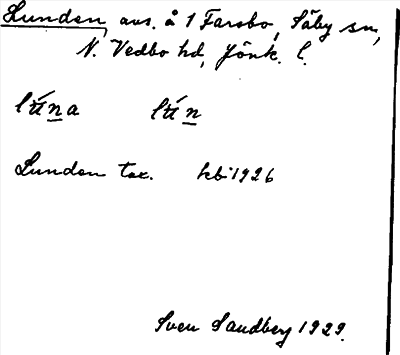 Lunden avs. å 1 Farsbo, Säby sn,
N. Vedbo hd, Jönk. l.
Lunden tax. hbi 1926
Sven Sandberg 1929.